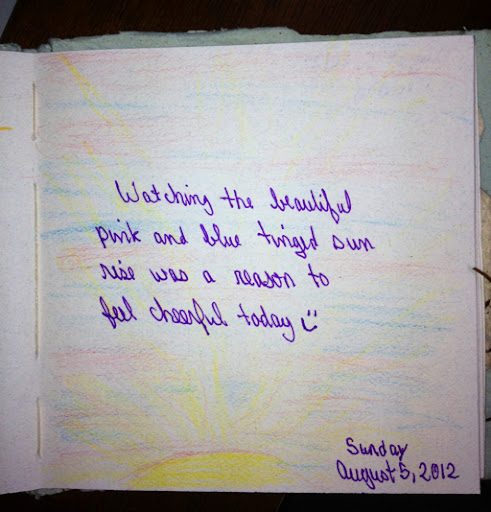 Watching the beautiful
pink and blue tinged sun
rise was a reason to
feel cheerful today :)
Sunday
August 5, 2012